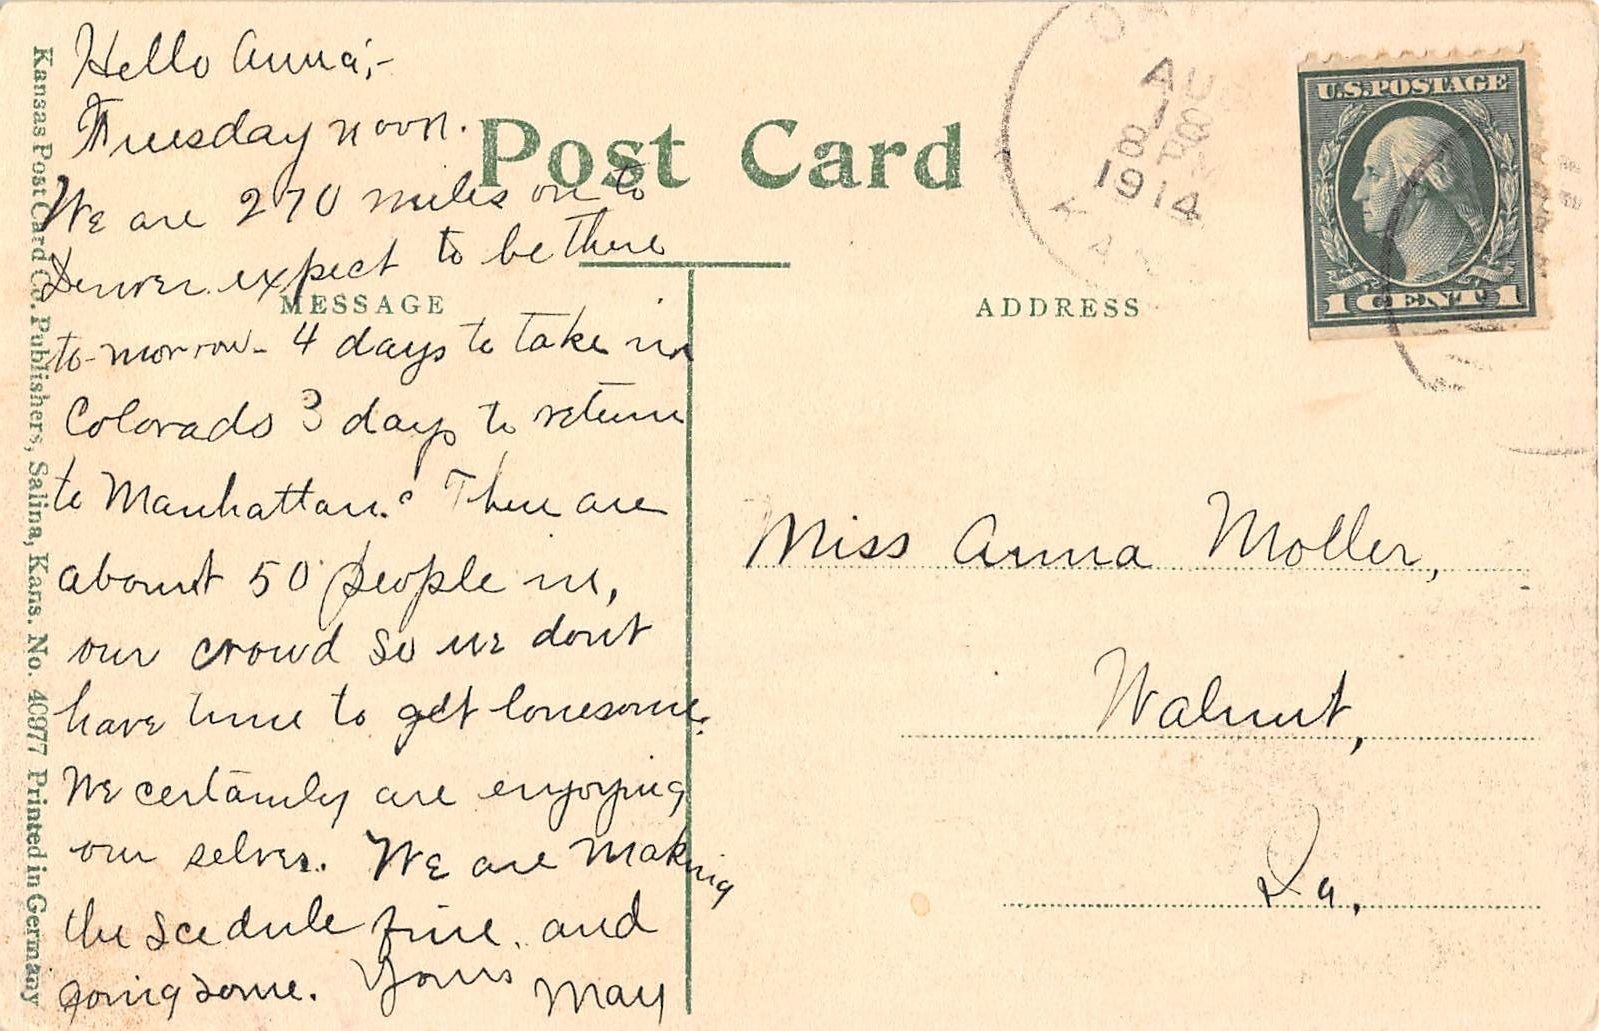 Hello Anna;-
Tuesday noon.
We are 270 miles on to
Denver. expect to be there
to-morrow- 4 days to take in
Colorado 3 days to return
to Manhattan. There are
about 50 people in,
our crowd so we dont
have time to get lonesome.
We certainly are enjoying
our selves. We are making
the scedule fine, and
going some. Yours May
Post Card
MESSAGE
ADDRESS
AU
18
8 P
1914
KAN
U.S.POSTAGE
1 CENT 1
Miss Anna Moller,
Walnut,
Ia.
Kansas Post Card Co. Publishers, Salina, Kans. No. 40977 Printed in Germany